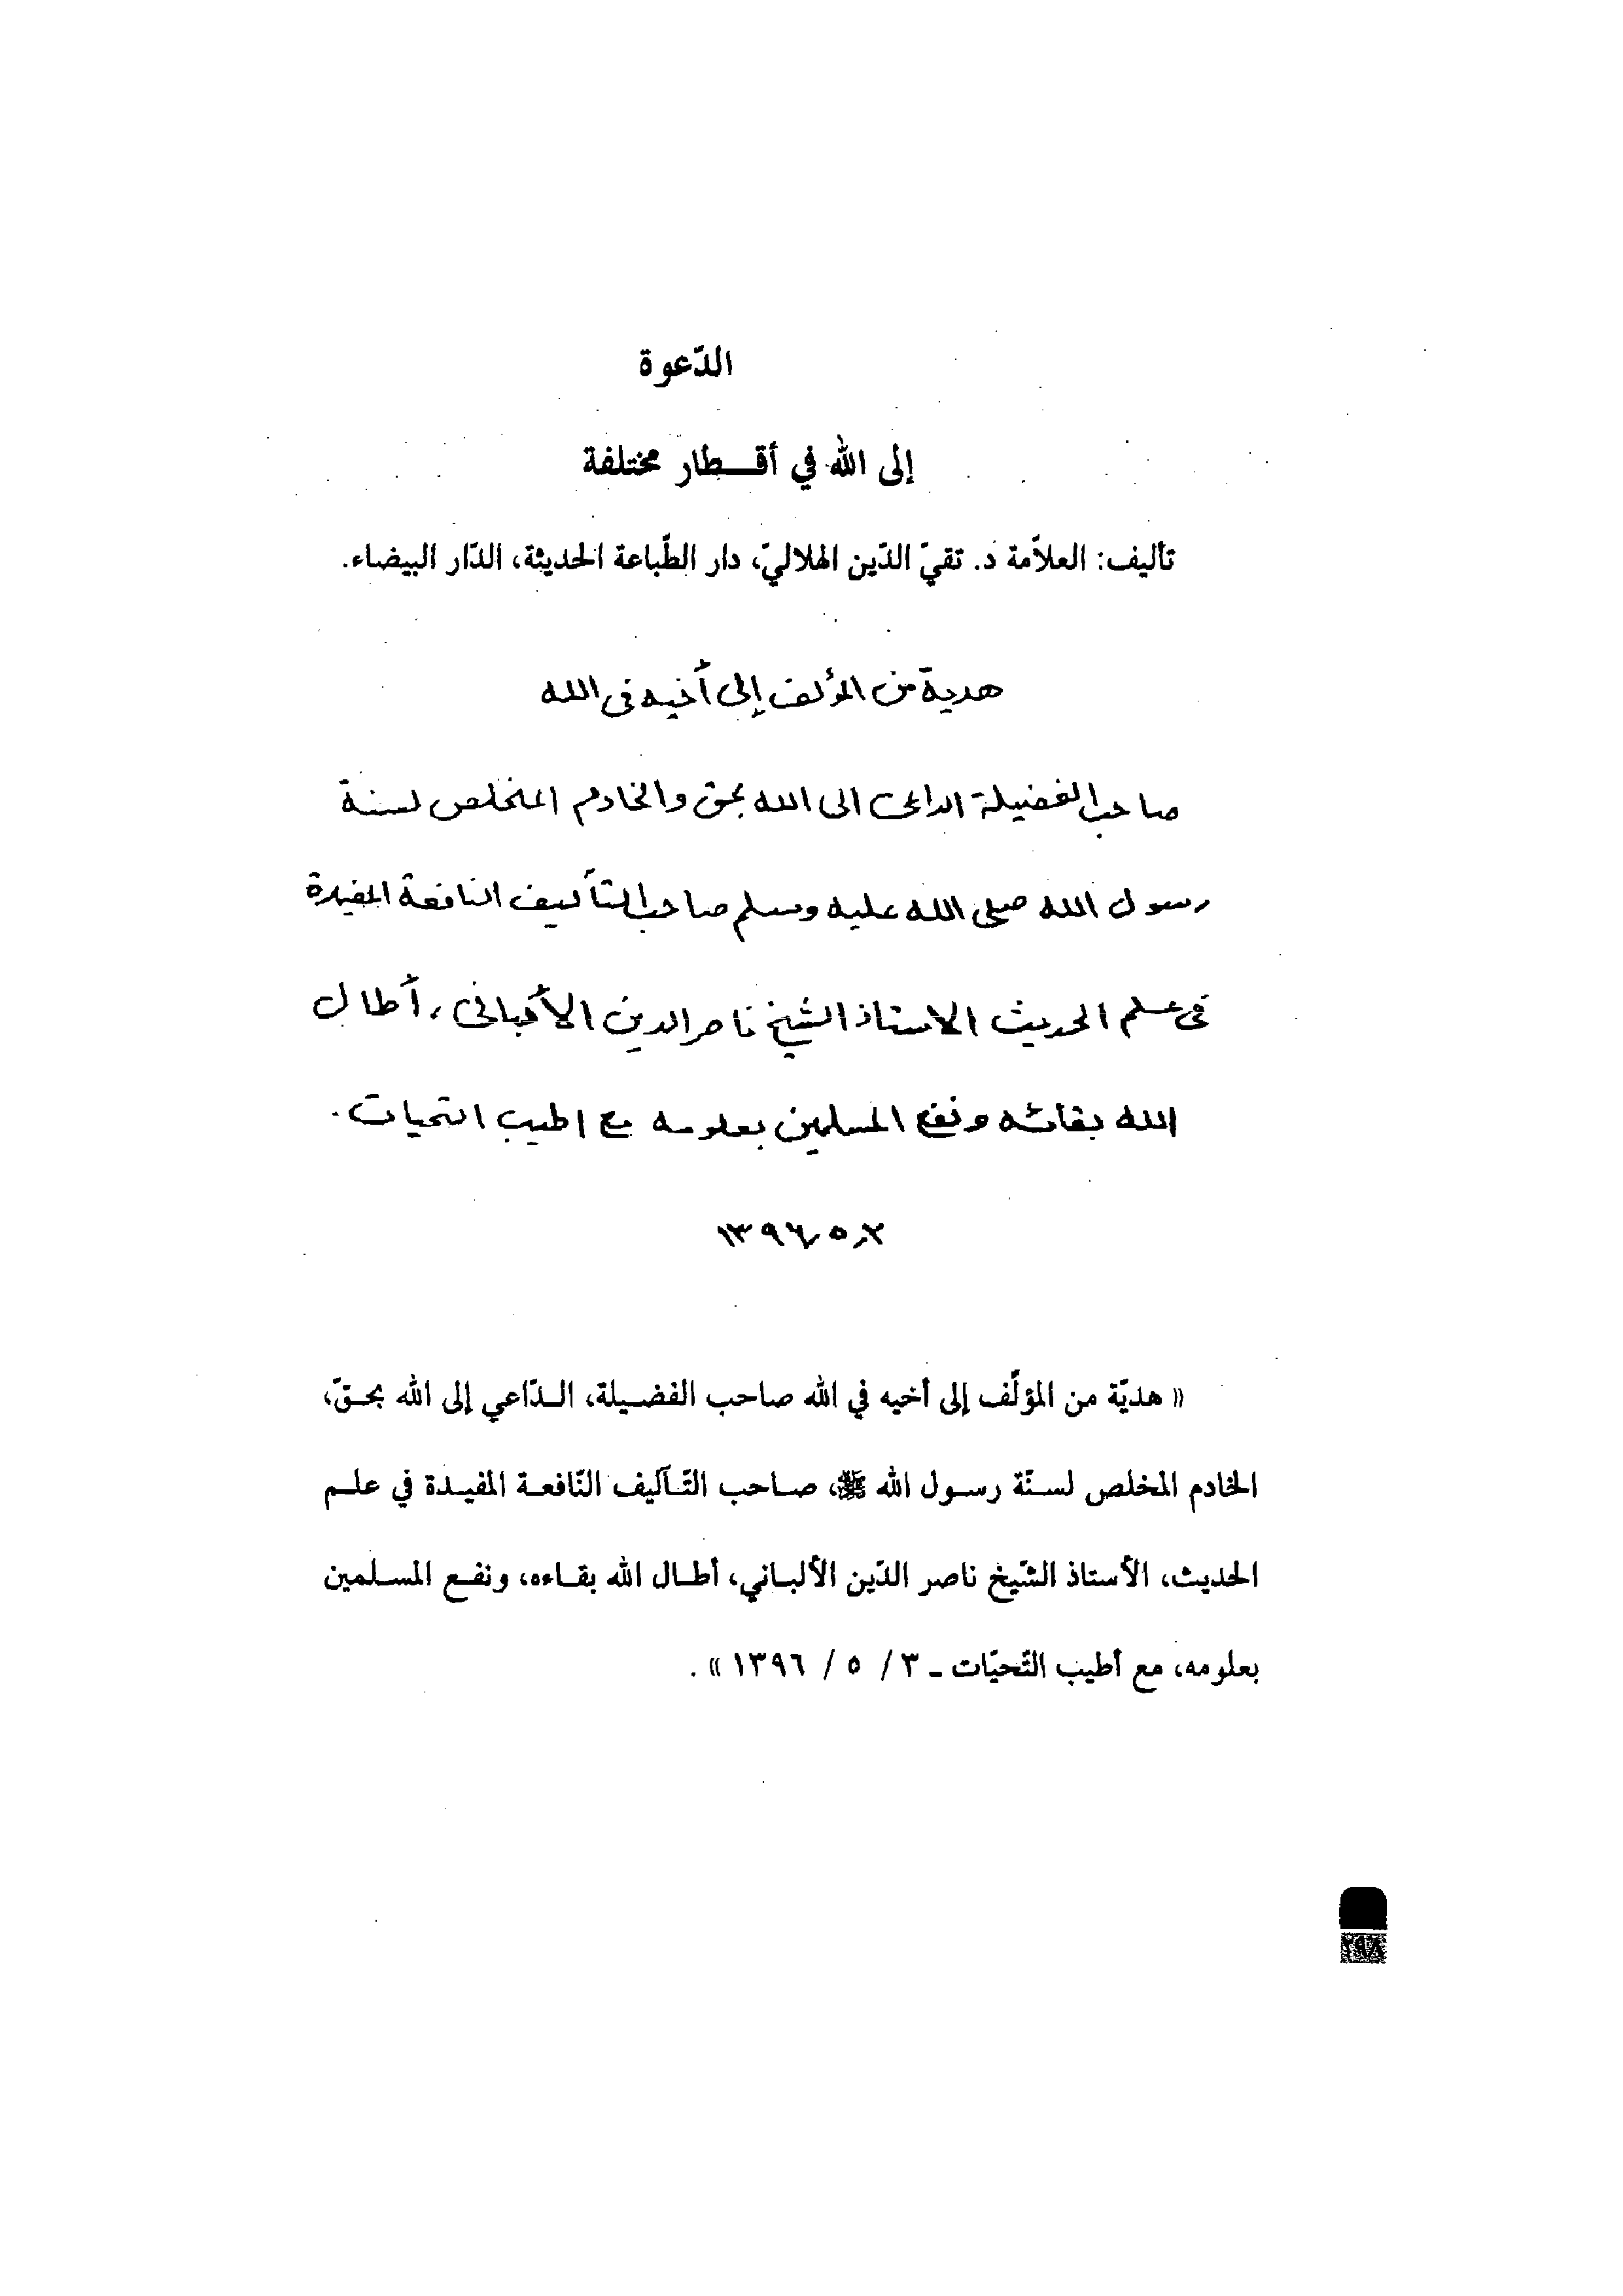 الدّعوة
إلى الله في أقـطار مختلفة
تأليف: العلاّمة د. تقيّ الدّين الهلاليّ، دار الطّباعة الحديثة، الدّار البيضاء.
هدية من المؤلف إلى أخيه فى الله
صاحب الفضيلة الداعى الى الله بحق والخادم المخلص لسنة
رسول الله صلى الله عليه وسلم صاحب التآليف النافعة المفيدة
فى علم الحديث الاستاذ الشيخ ناصر الدين الألبانى، أطال
الله بقائه ونفع المسلمين بعلومه مع اطيب التحيات.
٣ ٥ ١٣٩٦
« هديّة من المؤلّف إلى أخيه في الله صاحب الفضيلة، الدّاعي إلى الله بحقّ،
الخادم المخلص لسنّة رسول الله ﷺ، صاحب التّآليف النّافعة المفيدة في علم
الحديث، الأستاذ الشّيخ ناصر الدّين الألباني، أطال الله بقاءه، ونفع المسلمين
بعلومه، مع أطيب التّحيّات ـ ٣ / ٥ / ١٣٩٦ ».
٢٩٨